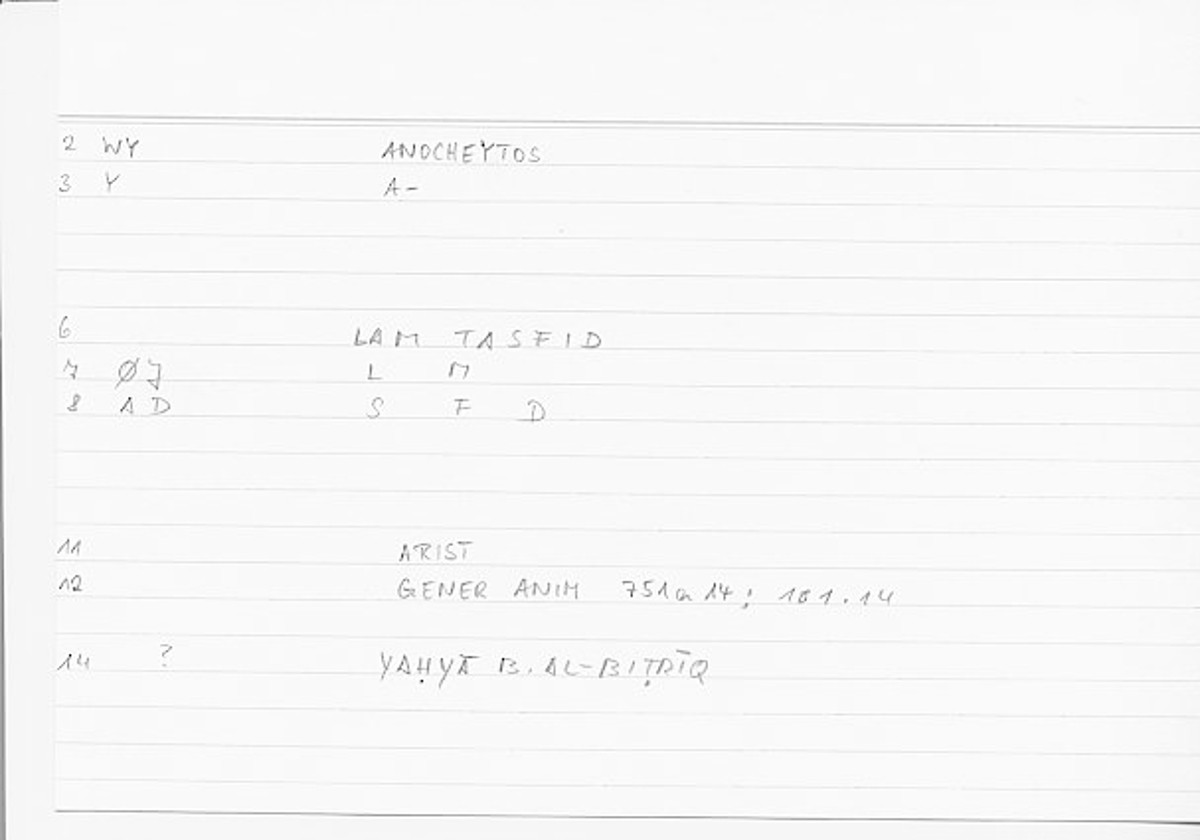 2 WY ANOCHEYTOS
3 Y A-
6 LAM TASFID
7 ØJ L M
8 AD S F D
11 ARIST
12 GENER ANIM 751a14; 181.14
14 ? YAḤYĀ B. AL-BIṬRĪQ